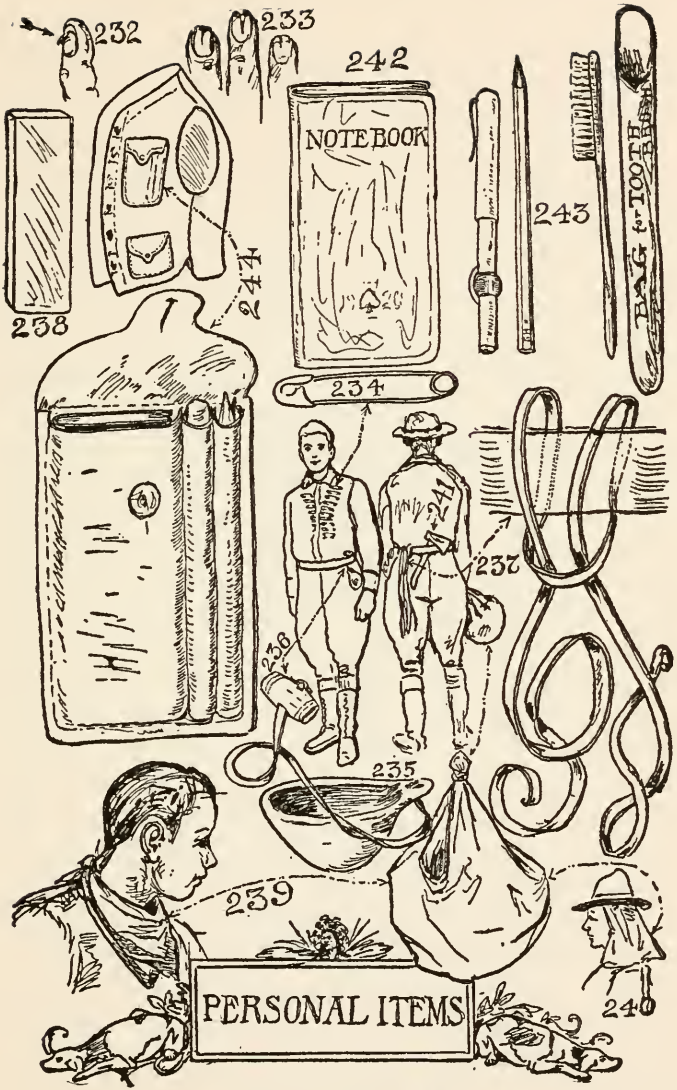 232
233
242
NOTEBOOK
19 20
243
BAG for TOOTH
BRUSH
238
244
234
241
237
236
235
239
240
PERSONAL ITEMS